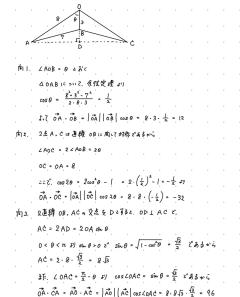 O
8
3
8
B
7
A
D
C
問1. ∠AOB = θ とおく
△OABについて, 余弦定理より
cosθ = (8²+3²-7²)/(2・8・3) = 1/2
よって OA・OB = |OA||OB|cosθ = 8・3・1/2 = 12
問2. 2点A, Cは直線OBに関して対称であるから
∠AOC = 2∠AOB = 2θ
OC = OA = 8
ここで, cos2θ = 2cos²θ - 1 = 2・(1/2)² - 1 = -1/2 より
OA・OC = |OA||OC|cos2θ = 8・8・(-1/2) = -32
問3. 2直線OB, ACの交点をDとすると, OD ⊥ AC で,
AC = 2AD = 2OA sinθ
0 < θ < π より sinθ > 0 で sinθ = √(1-cos²θ) = √3/2 であるから
AC = 2・8・√3/2 = 8√3
また, ∠OAC = π/2 - θ より cos∠OAC = sinθ = √3/2 であるから
OA・CA = AO・AC = |AO||AC|cos∠OAC = 8・8√3・√3/2 = 96